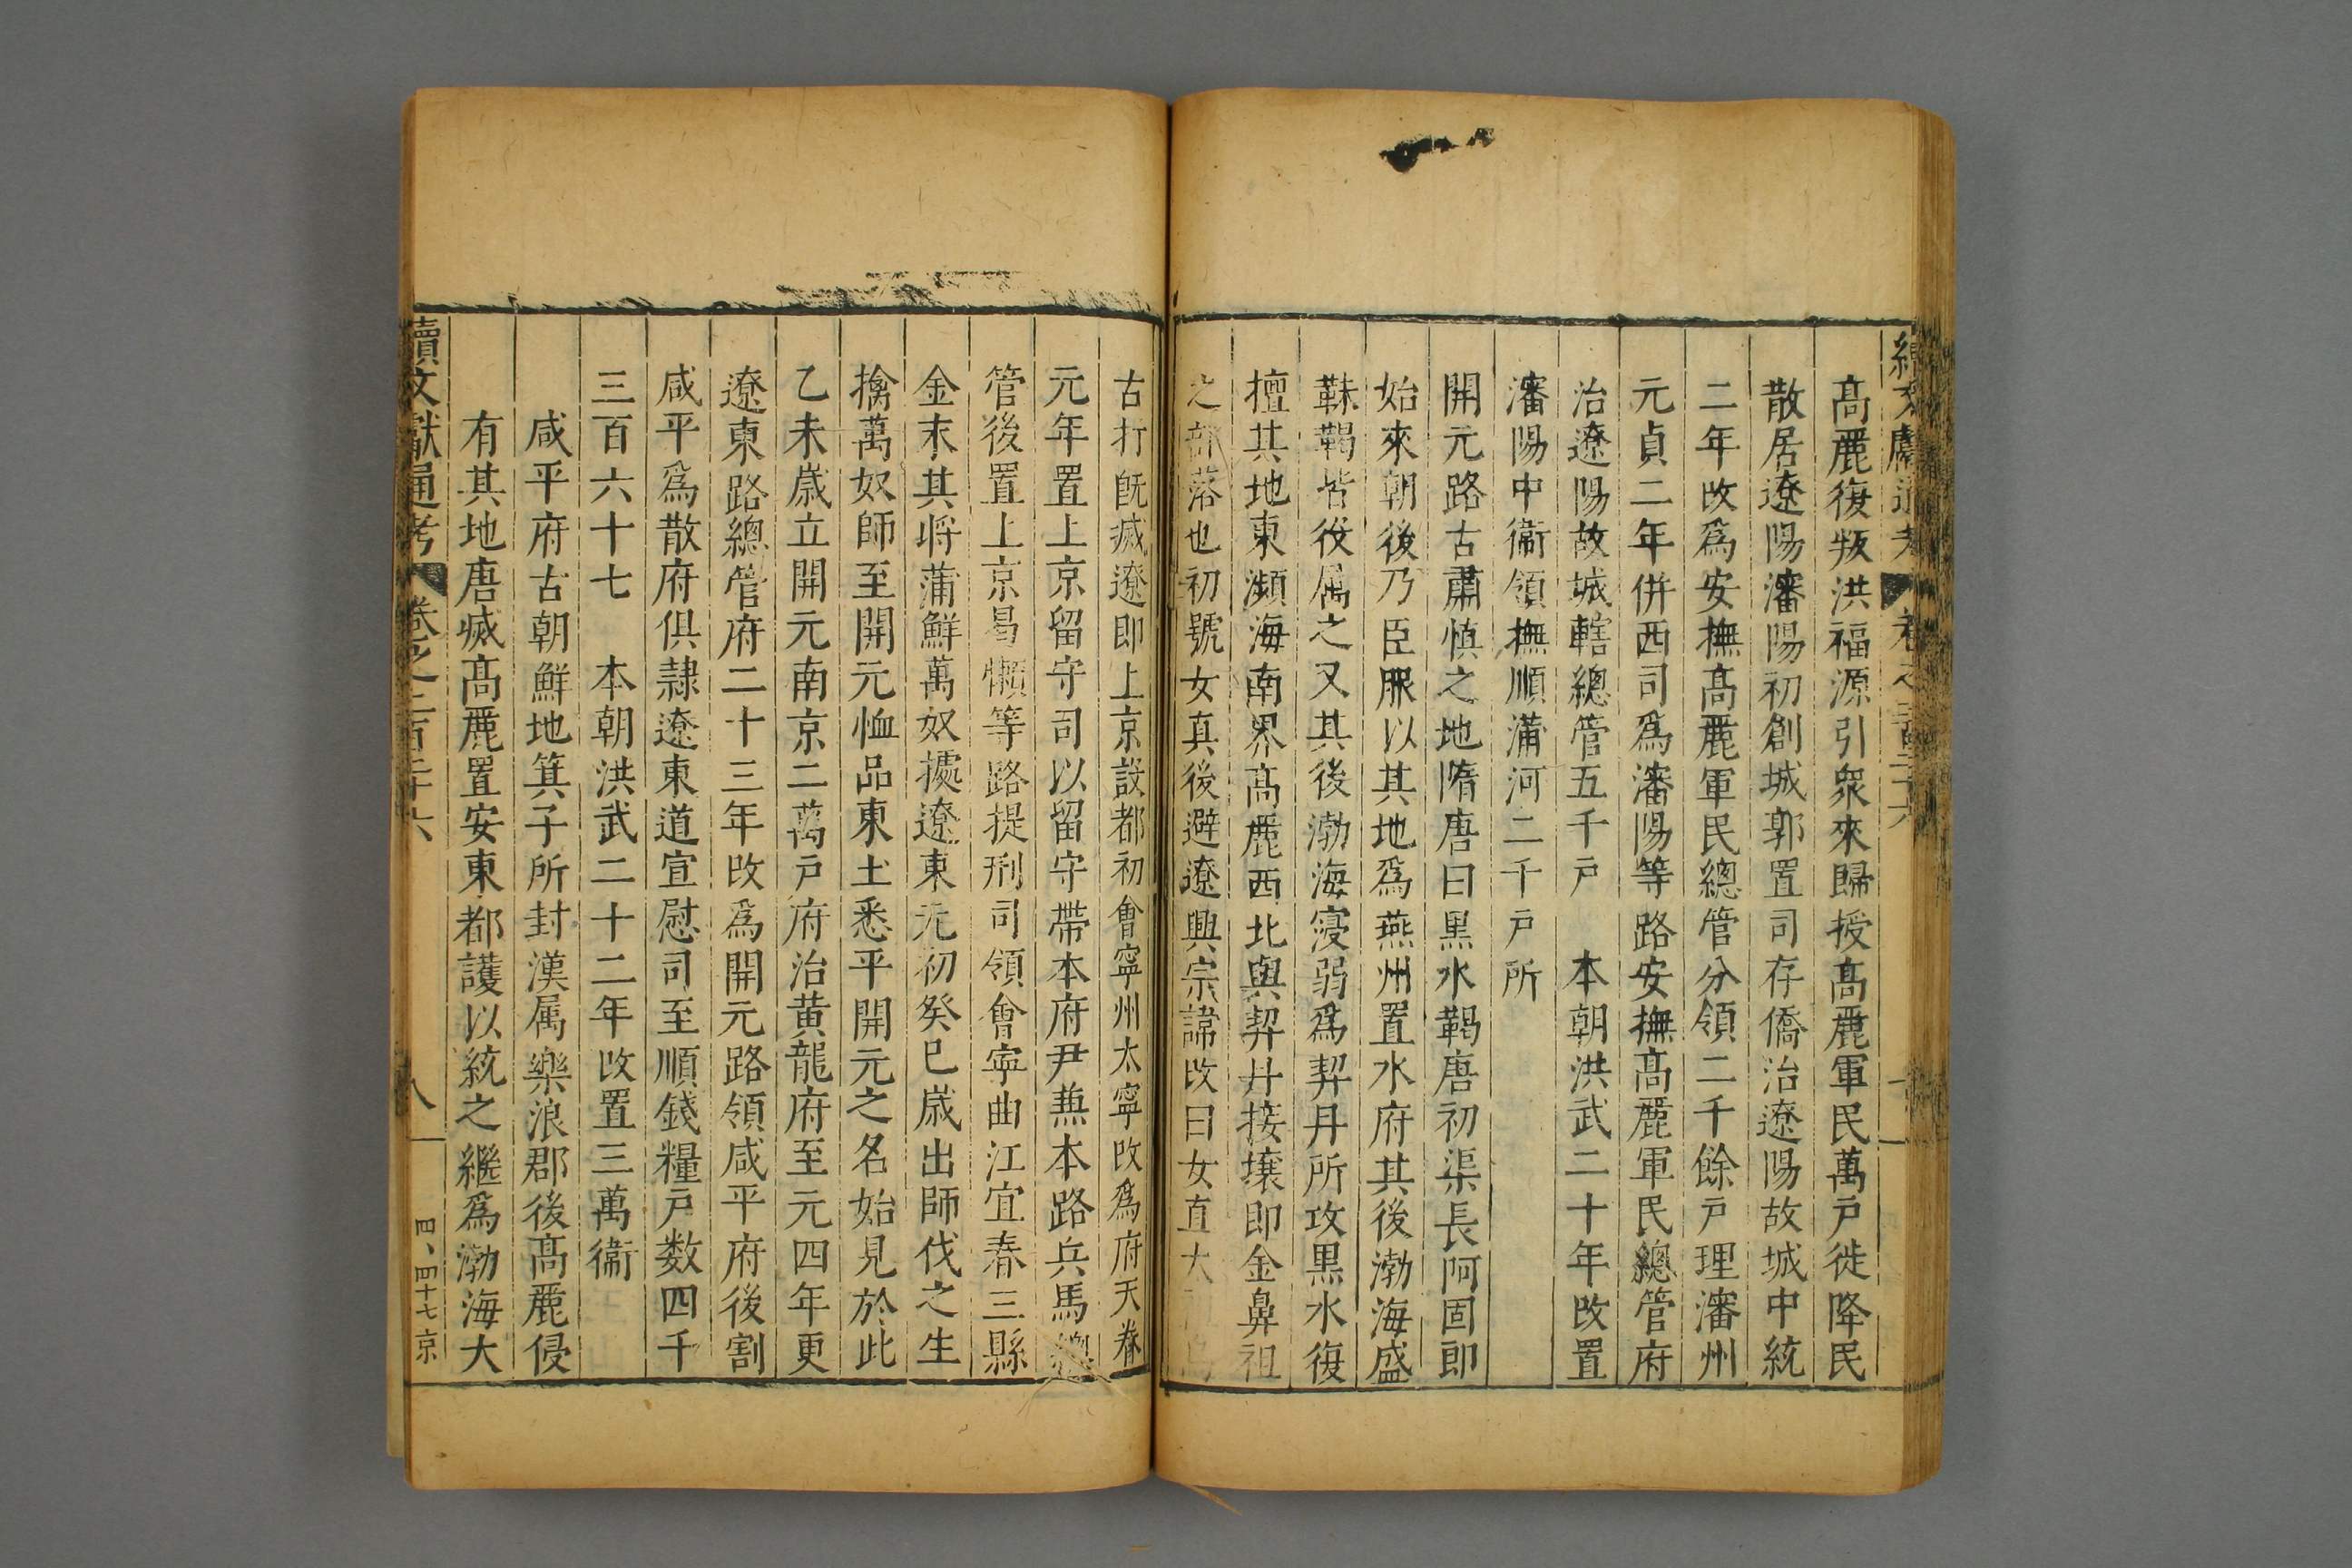 高麗復叛洪福源引衆來歸授高麗軍民萬戸徙降民
散居遼陽瀋陽初創城郭置司存僑治遼陽故城中統
二年改爲安撫高麗軍民總管分領二千餘戸理瀋州
元貞二年併西司爲瀋陽等路安撫高麗軍民總管府
治遼陽故城轄總管五千戸　本朝洪武二十年改置
瀋陽中衞領撫順蒲河二千戸所
開元路古肅慎之地隋唐曰黒水靺鞨唐初渠長阿固郎
始來朝後乃臣服以其地爲燕州置水府其後渤海盛
靺鞨皆役属之又其後渤海寖弱爲契丹所攻黒水復
擅其地東瀕海南界高麗西北與契丹接壤即金鼻祖
之部落也初號女真後避遼興宗諱改曰女直大
古打旣滅遼即上京設都初會寧州太寧改爲府天眷
元年置上京留守司以留守帶本府尹兼本路兵馬總
管後置上京曷懶等路提刑司領會寧曲江宜春三縣
金末其將蒲鮮萬奴據遼東元初癸巳歳出師伐之生
擒萬奴師至開元恤品東土悉平開元之名始見於此
乙未歳立開元南京二萬戸府治黄龍府至元四年更
遼東路總管府二十三年改爲開元路領咸平府後割
咸平爲散府俱隷遼東道宣慰司至順錢糧戸数四千
三百六十七　本朝洪武二十二年改置三萬衞
咸平府古朝鮮地箕子所封漢属樂浪郡後高麗侵
有其地唐滅高麗置安東都護以統之繼爲渤海大
續文獻通考　卷之二百二十六　八　四、四十七京